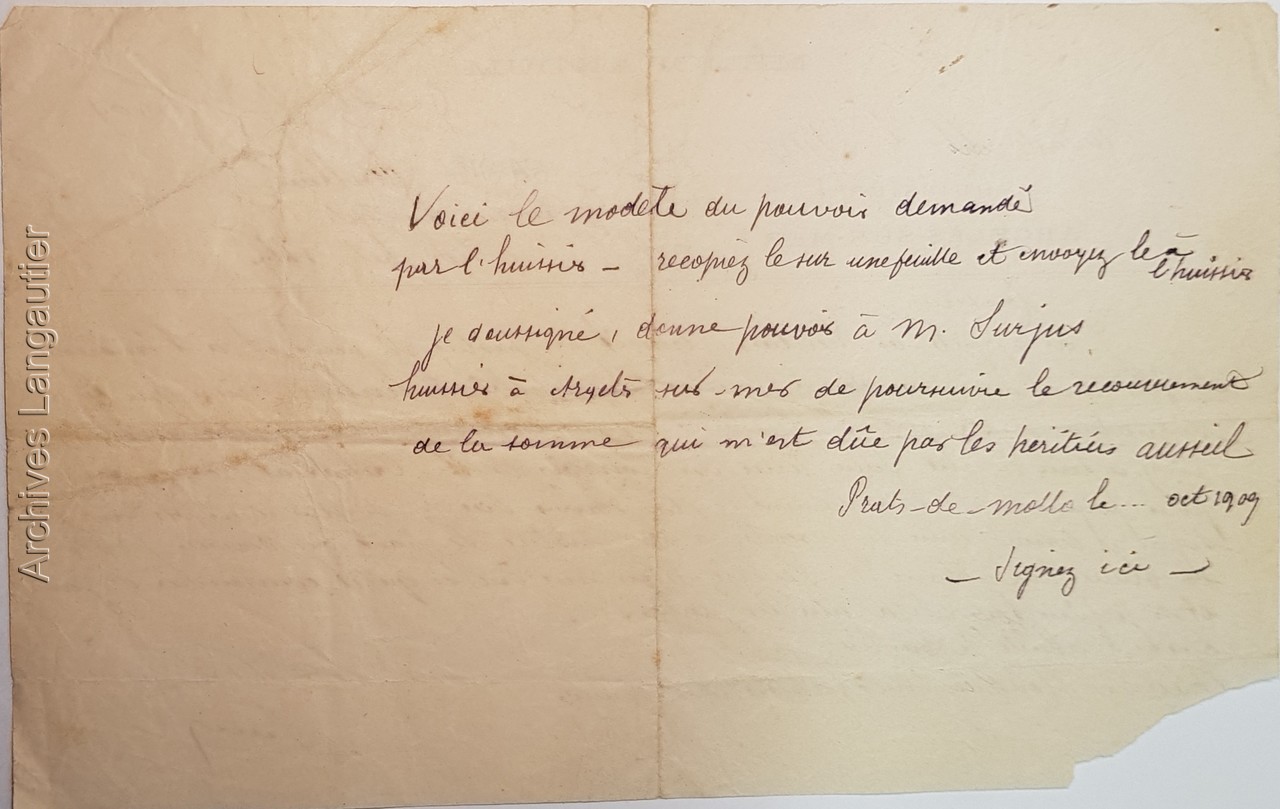 Voici le modèle du pouvoir demandé
par l'huissier – recopiez le sur une feuille et envoyez le à l'huissier
je soussigné, donne pouvoir à M. Surjus
huissier à Argelès sur-mer de poursuivre le recouvrement
de la somme qui m'est dûe par les héritiers ausseil
Prats-de-mollo le ... oct 1909
– Signez ici –
Archives Langautier